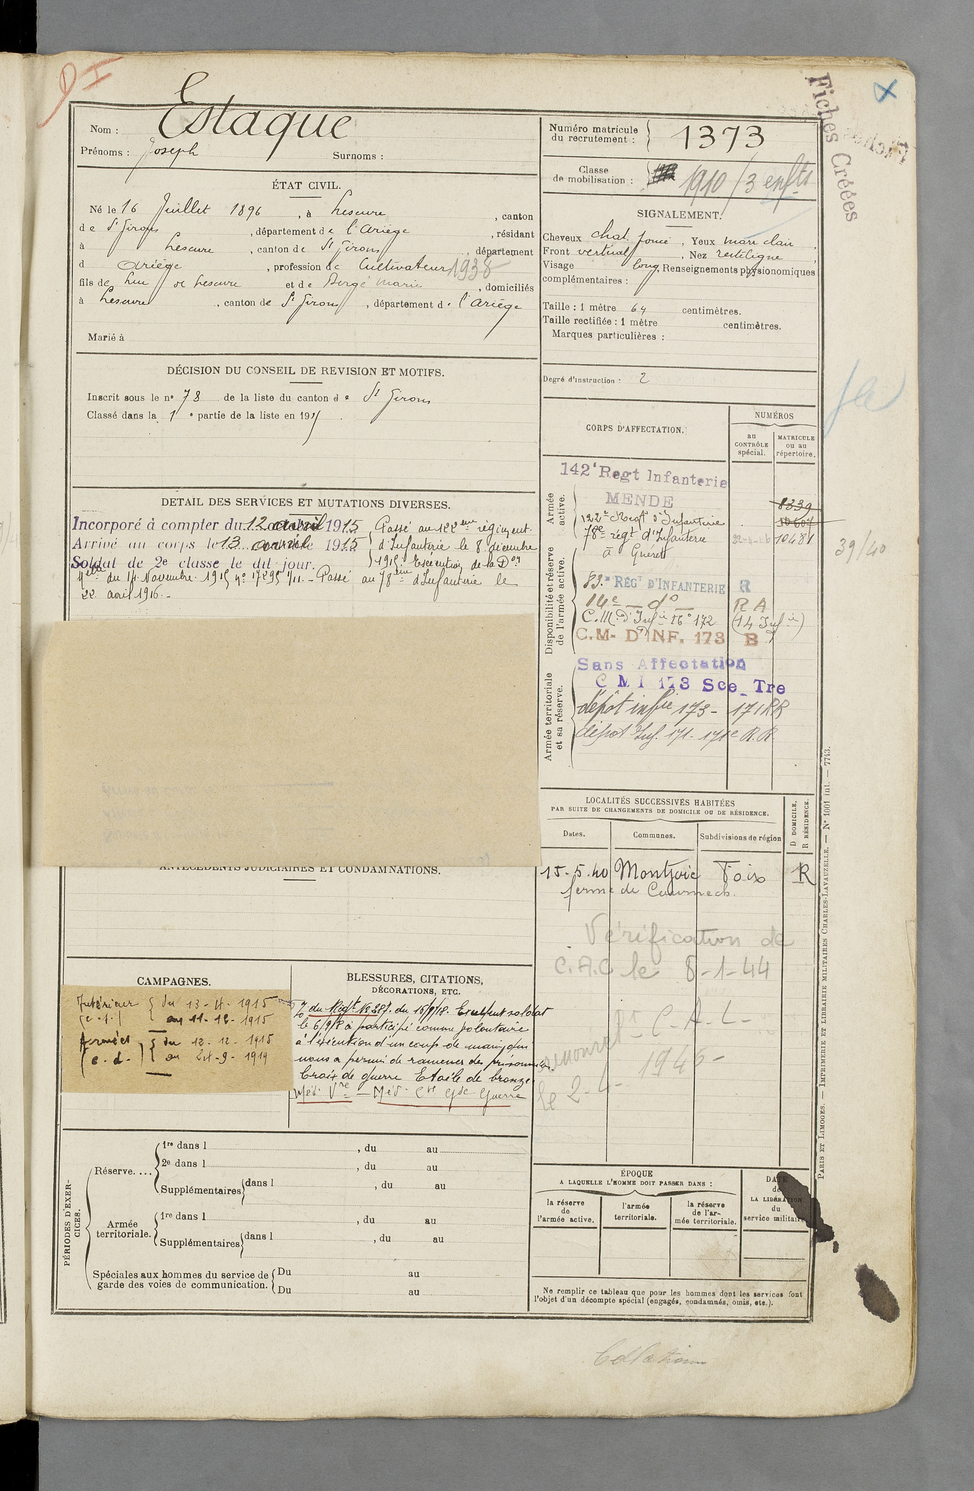 Fiches Créées
Nom : Estaque
Prénoms : Joseph Surnoms :
Numéro matricule
du recrutement : 1373
Classe
de mobilisation : 1910 / 3 enfts
ÉTAT CIVIL.
Né le 16 Juillet 1896, à Lescure, canton
de St Girons, département de l'Ariège, résidant
à Lescure, canton de St Girons, département
d Ariège, profession de Cultivateur 1938
fils de feu de Lescure et de Bergé Marie, domiciliés
à Lescure, canton de St Girons, département de l'Ariège
Marié à
SIGNALEMENT.
Cheveux chat. foncé, Yeux marr clair,
Front vertical, Nez rectiligne
Visage long, Renseignements physionomiques
complémentaires :
Taille : 1 mètre 64 centimètres.
Taille rectifiée : 1 mètre centimètres.
Marques particulières :
Degré d'instruction : 2
DÉCISION DU CONSEIL DE REVISION ET MOTIFS.
Inscrit sous le no 78 de la liste du canton de St Girons
Classé dans la 1e partie de la liste en 1915
DÉTAIL DES SERVICES ET MUTATIONS DIVERSES.
Incorporé à compter du 12 avril 1915
Arrivé au corps le 13 avril 1915
Soldat de 2e classe le dit jour.
Passé au 122eme régiment
d'Infanterie le 8 décembre
1915. Exécution de la Don
du 14 Novembre 1915 no 17295 1/11. Passé au 78eme d'Infanterie le
22 avril 1916.
CORPS D'AFFECTATION.
NUMÉROS
au
CONTRÔLE
spécial.
MATRICULE
ou au
répertoire.
Armée
active.
142e Regt Infanterie
MENDE
122e Regt d'Infanterie
78e régt d'Infanterie
à Guéret
8339
10481
39/40
Disponibilité et réserve
de l'armée active.
83e REGt D'INFANTERIE R
14e — do — R A
C.M. D'Inf ie No 172 (14 Inf ie)
C.M. D'INF. 173 B
Armée territoriale
et sa réserve.
Sans Affectation
C M I 173 Sce Tre
dépôt infie 173 - 171 RR
dépôt Inf. 171 - 171e R.R
LOCALITÉS SUCCESSIVES HABITÉES
PAR SUITE DE CHANGEMENTS DE DOMICILE OU DE RÉSIDENCE.
Dates. Communes. Subdivisions de région
D DOMICILE.
R RÉSIDENCE.
15.5.40 Montjoie Foix R
ferme de
Vérification de
C.A.C le 8-1-44
C.A.L.
1946
le 2-4-
ANTÉCÉDENTS JUDICIAIRES ET CONDAMNATIONS.
CAMPAGNES.
Intérieur du 13-4-1915
(c.s.) au 11-12-1915
Armées du 12-12-1915
(c.d.) au 21-9-1919
BLESSURES, CITATIONS,
DÉCORATIONS, ETC.
O/ du Régt No 387 du 15/9/18. Excellent soldat
le 6/9/8 a participé comme volontaire
à l'exécution d'un coup de main qui
nous a permis de ramener des prisonniers.
Croix de guerre Etoile de bronze
Méd. Vre — Méd. Cve Gde Guerre
PÉRIODES D'EXER-
CICES.
Réserve....
1re dans l , du au
2e dans l , du au
Supplémentaires dans l , du au
Armée
territoriale.
1re dans l , du au
Supplémentaires dans l , du au
Spéciales aux hommes du service de
garde des voies de communication.
Du au
Du au
ÉPOQUE
A LAQUELLE L'HOMME DOIT PASSER DANS :
la réserve
de
l'armée active.
l'armée
territoriale.
la réserve
de l'ar-
mée territoriale.
DATE
de
LA LIBÉRATION
du
service militaire
Ne remplir ce tableau que pour les hommes dont les services font
l'objet d'un décompte spécial (engagés, condamnés, omis, etc.).
PARIS ET LIMOGES. — IMPRIMERIE ET LIBRAIRIE MILITAIRES CHARLES-LAVAUZELLE. — No 1001 int. — 7713.